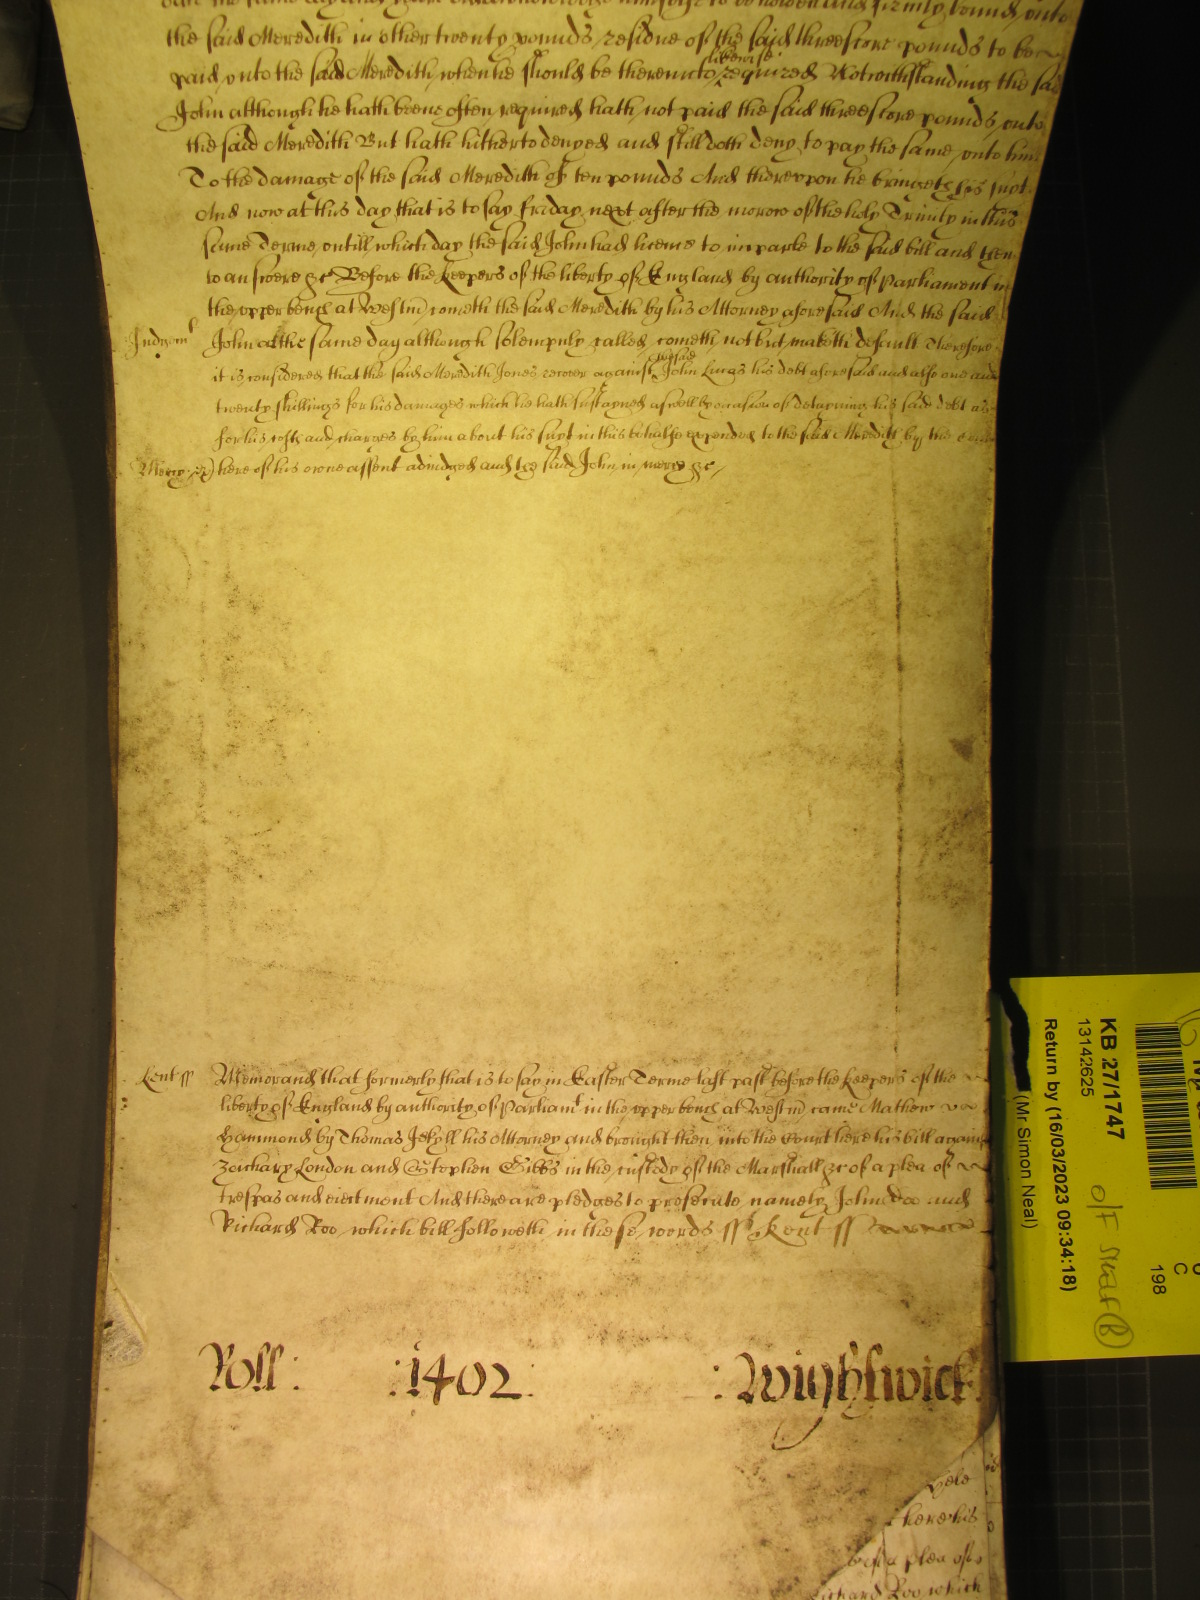 the same
the said Meredith in other twenty pounds residue of the said threescore pounds to bee
paid unto the said Meredith when he should be thereunto likewise required Notwithstanding the said
John although he hath beene often required hath not paid the said threescore pounds unto
the said Meredith But hath hitherto denyed and still doth deny to pay the same unto him
To the damage of the said Meredith of ten pounds And thereupon he bringeth his suyt
And now at this day that is to say Friday next after the morow of the holy Trinity in this
same Terme untill which day the said John had licence to imparle to the said bill and then
to answere &c Before the keepers of the liberty of England by authority of Parliament in
the upper bench at Westm cometh the said Meredith by his Attorney aforesaid And the said
Judgmt John at the same day although solempnly called cometh not but maketh default Therefore
it is considered that the said Meredith Jones recover against John Lucas his debt aforesaid and also one and
twenty shillings for his damages which he hath sustayned aswell by occasion of detayning his said debt as
for his costs and charges by him about his suyt in this behalfe expended to the said Meredith by the
Mercy here of his owne assent adiudged and the said John in mercy &c
Kent ss Memorand that formerly that is to say in Easter Terme last past before the keepers of the
liberty of England by authority of Parliamt in the upper bench at Westm came Mathew
Hammond by Thomas Jekyll his Attorney and brought then into the Court here his bill against
Zachary London and Stephen Gibbs in the custody of the Marshall &c of a plea of
trespas and eiectment And there are pledges to prosecute namely John doo and
Richard Roo which bill followeth in these words ss Kent ss
Roll : : 1402 : : Wightwick
here
here his
of a plea of
Richard Roo which
KB 27/1747
13142625
Return by (16/03/2023 09:34:18)
(Mr Simon Neal)
O/F
198
C